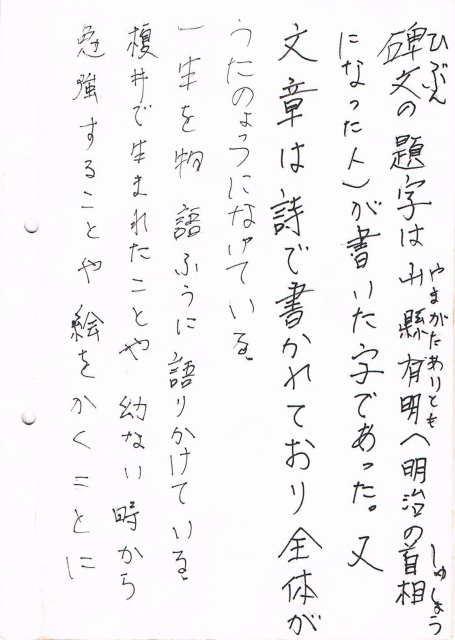 碑文の題字は山縣有明(明治の首相
ひぶん
やまがたありとも
しゅしょう
になった人)が書いた字であった。又
文章は詩で書かれており全体が
うたのようになけている。
一生を物語ふうに語りかけている。
榎井で生まれたことや幼ない時から
勉強することや絵をかくことに